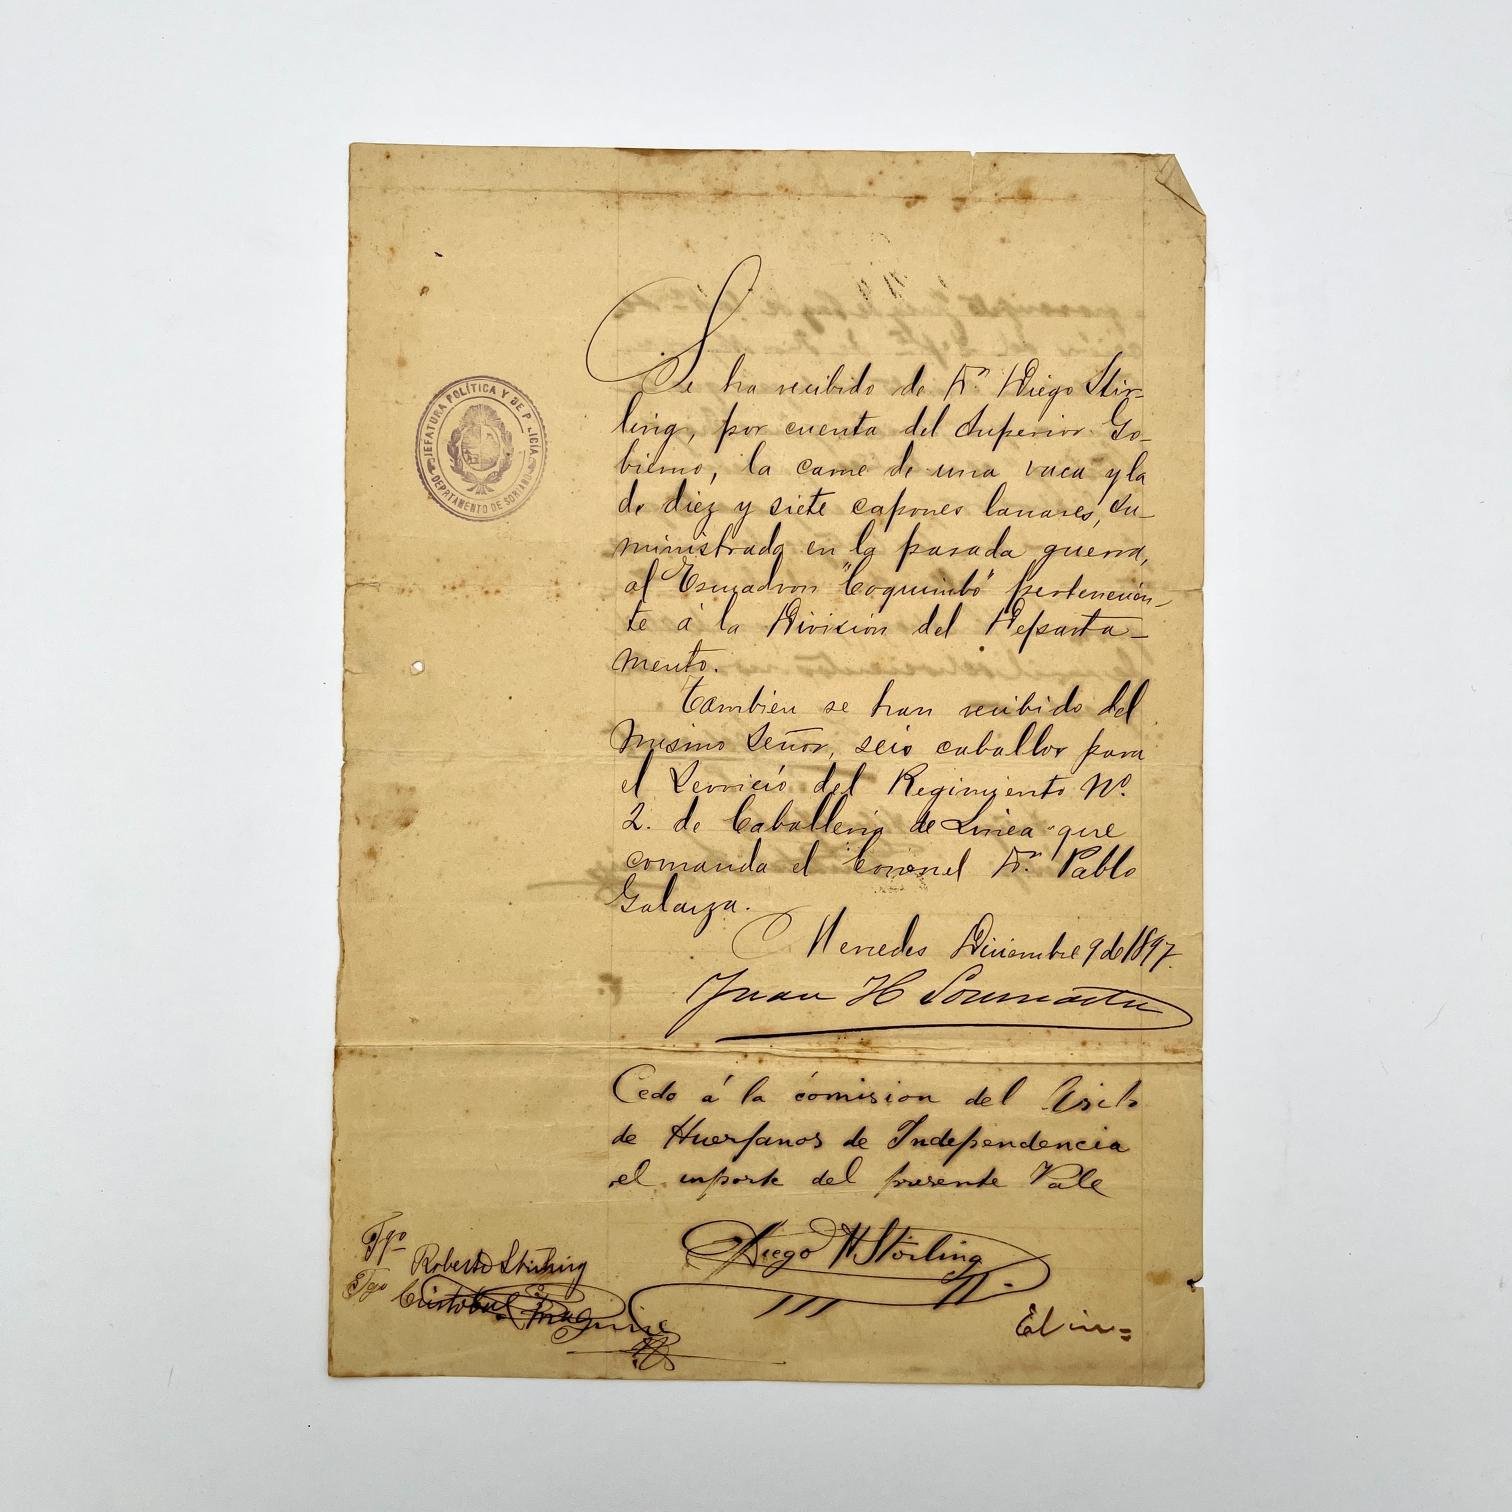 JEFATURA POLÍTICA Y DE POLICÍA
DEPARTAMENTO DE SORIANO
Se ha recibido de Dn. Diego Stir-
ling, por cuenta del Superior Go-
bierno, la carne de una vaca y la
de diez y siete capones lanares, su-
ministrada en la pasada guerra,
al Escuadron "Coquimbo" pertenecien-
te á la División del Departa-
mento.
Tambien se han recibido del
mismo Señor, seis caballos para
el Servicio del Regimiento Nº.
2. de Caballeria de Linea que
comanda el Coronel Dn. Pablo
Galarza.
Mercedes Diciembre 9 de 1897.
Juan H
Cedo á la comision del Asilo
de Huerfanos de Independencia
el importe del presente Vale
Diego H Stirling
Tgo Roberto Stirling
Tgo Cristobal
El in=